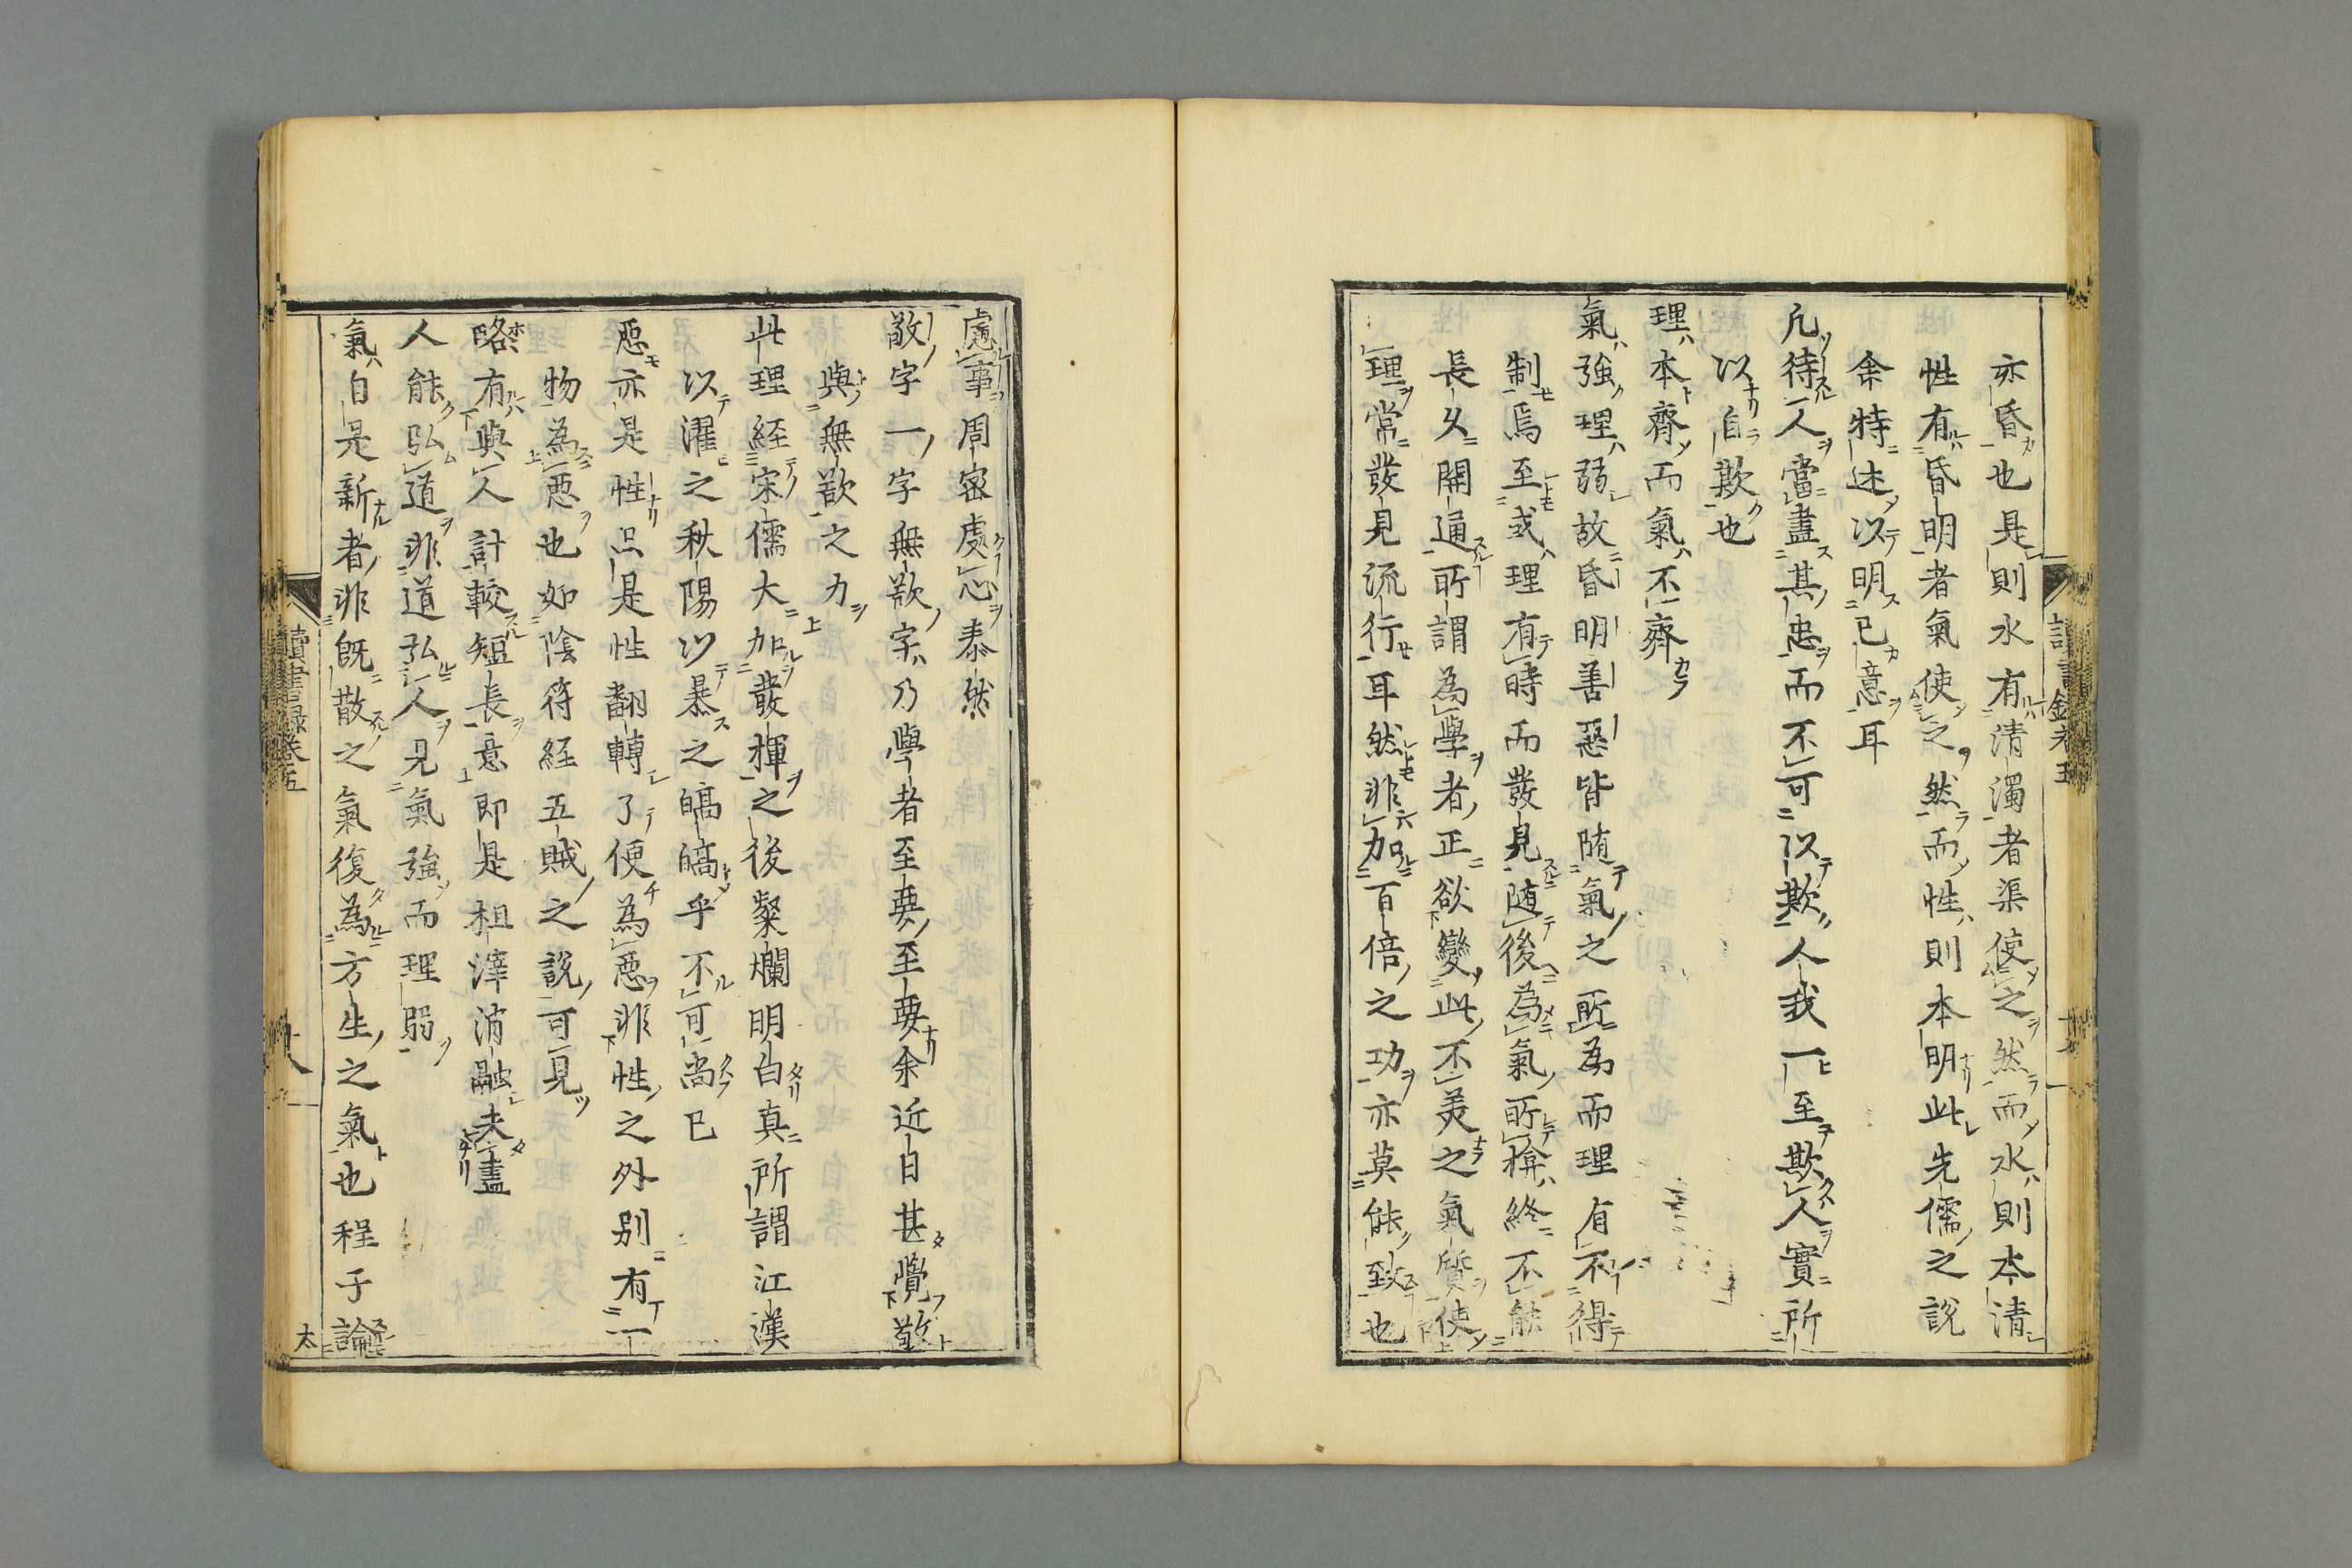 亦昏也是則水有清濁者渠使之然而水則本清
性有昏明者氣使之然而性則本明此先儒之說
余特述以明己意耳
凡待人當盡其忠而不可以欺人我一至欺人實所
以自欺也
理本齊而氣不齊
氣強理弱故昏明善惡皆随氣之所為而理有不得
制焉至或理有時而發見随後為氣所揜終不能
長久開通所謂為學者正欲變此不美之氣質使
理常發見流行耳然非加百倍之功亦莫能致也
慮事周密處心泰然
敬字一字無欲字乃學者至要至要余近日甚覺敬
與無欲之力
此理経宋儒大加發揮之後粲爛明白真所謂江漢
以濯之秋陽以暴之皜皜乎不可尚已
惡亦是性只是性翻轉了便為惡非性之外別有一
物為惡也如陰符経五賊之說可見
略有與人計較短長意即是柤滓消融未盡
人能弘道非道弘人見氣強而理弱
氣自是新者非既散之氣復為方生之氣也程子論
讀書録巻五
十八
太